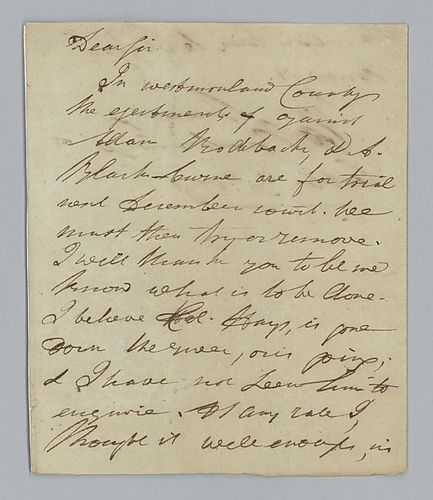 Dear Sir
In westmorland County
the ejectments of against
Adam Rodebach, & A.
Black are for trial
next December court. We
must then try or remove.
I will thank you to let me
know what is to be done.
I believe Col. Hays, is gone
down the river, or is going;
& I have not seen him to
enquire. At any rate, I
thought it well enough, in